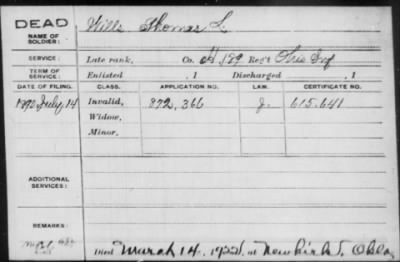 DEAD
NAME OF SOLDIER: Wills Thomas L
SERVICE: Late rank, Co. H 189 Reg't Ohio Inf
TERM OF SERVICE: Enlisted , 1 Discharged , 1
DATE OF FILING. CLASS. APPLICATION NO. LAW. CERTIFICATE NO.
July 14 Invalid, 872,366 J. 615.641
Widow,
Minor.
ADDITIONAL SERVICES:
REMARKS:
Died March 14, at Newkirk, Okla